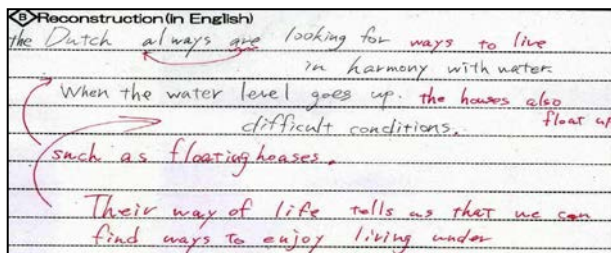 B Reconstruction (in English)
the Dutch always are looking for ways to live
in harmony with water.
When the water level goes up. the houses also
float up
difficult conditions.
such as floating houses.
Their way of life tells us that we can
find ways to enjoy living under